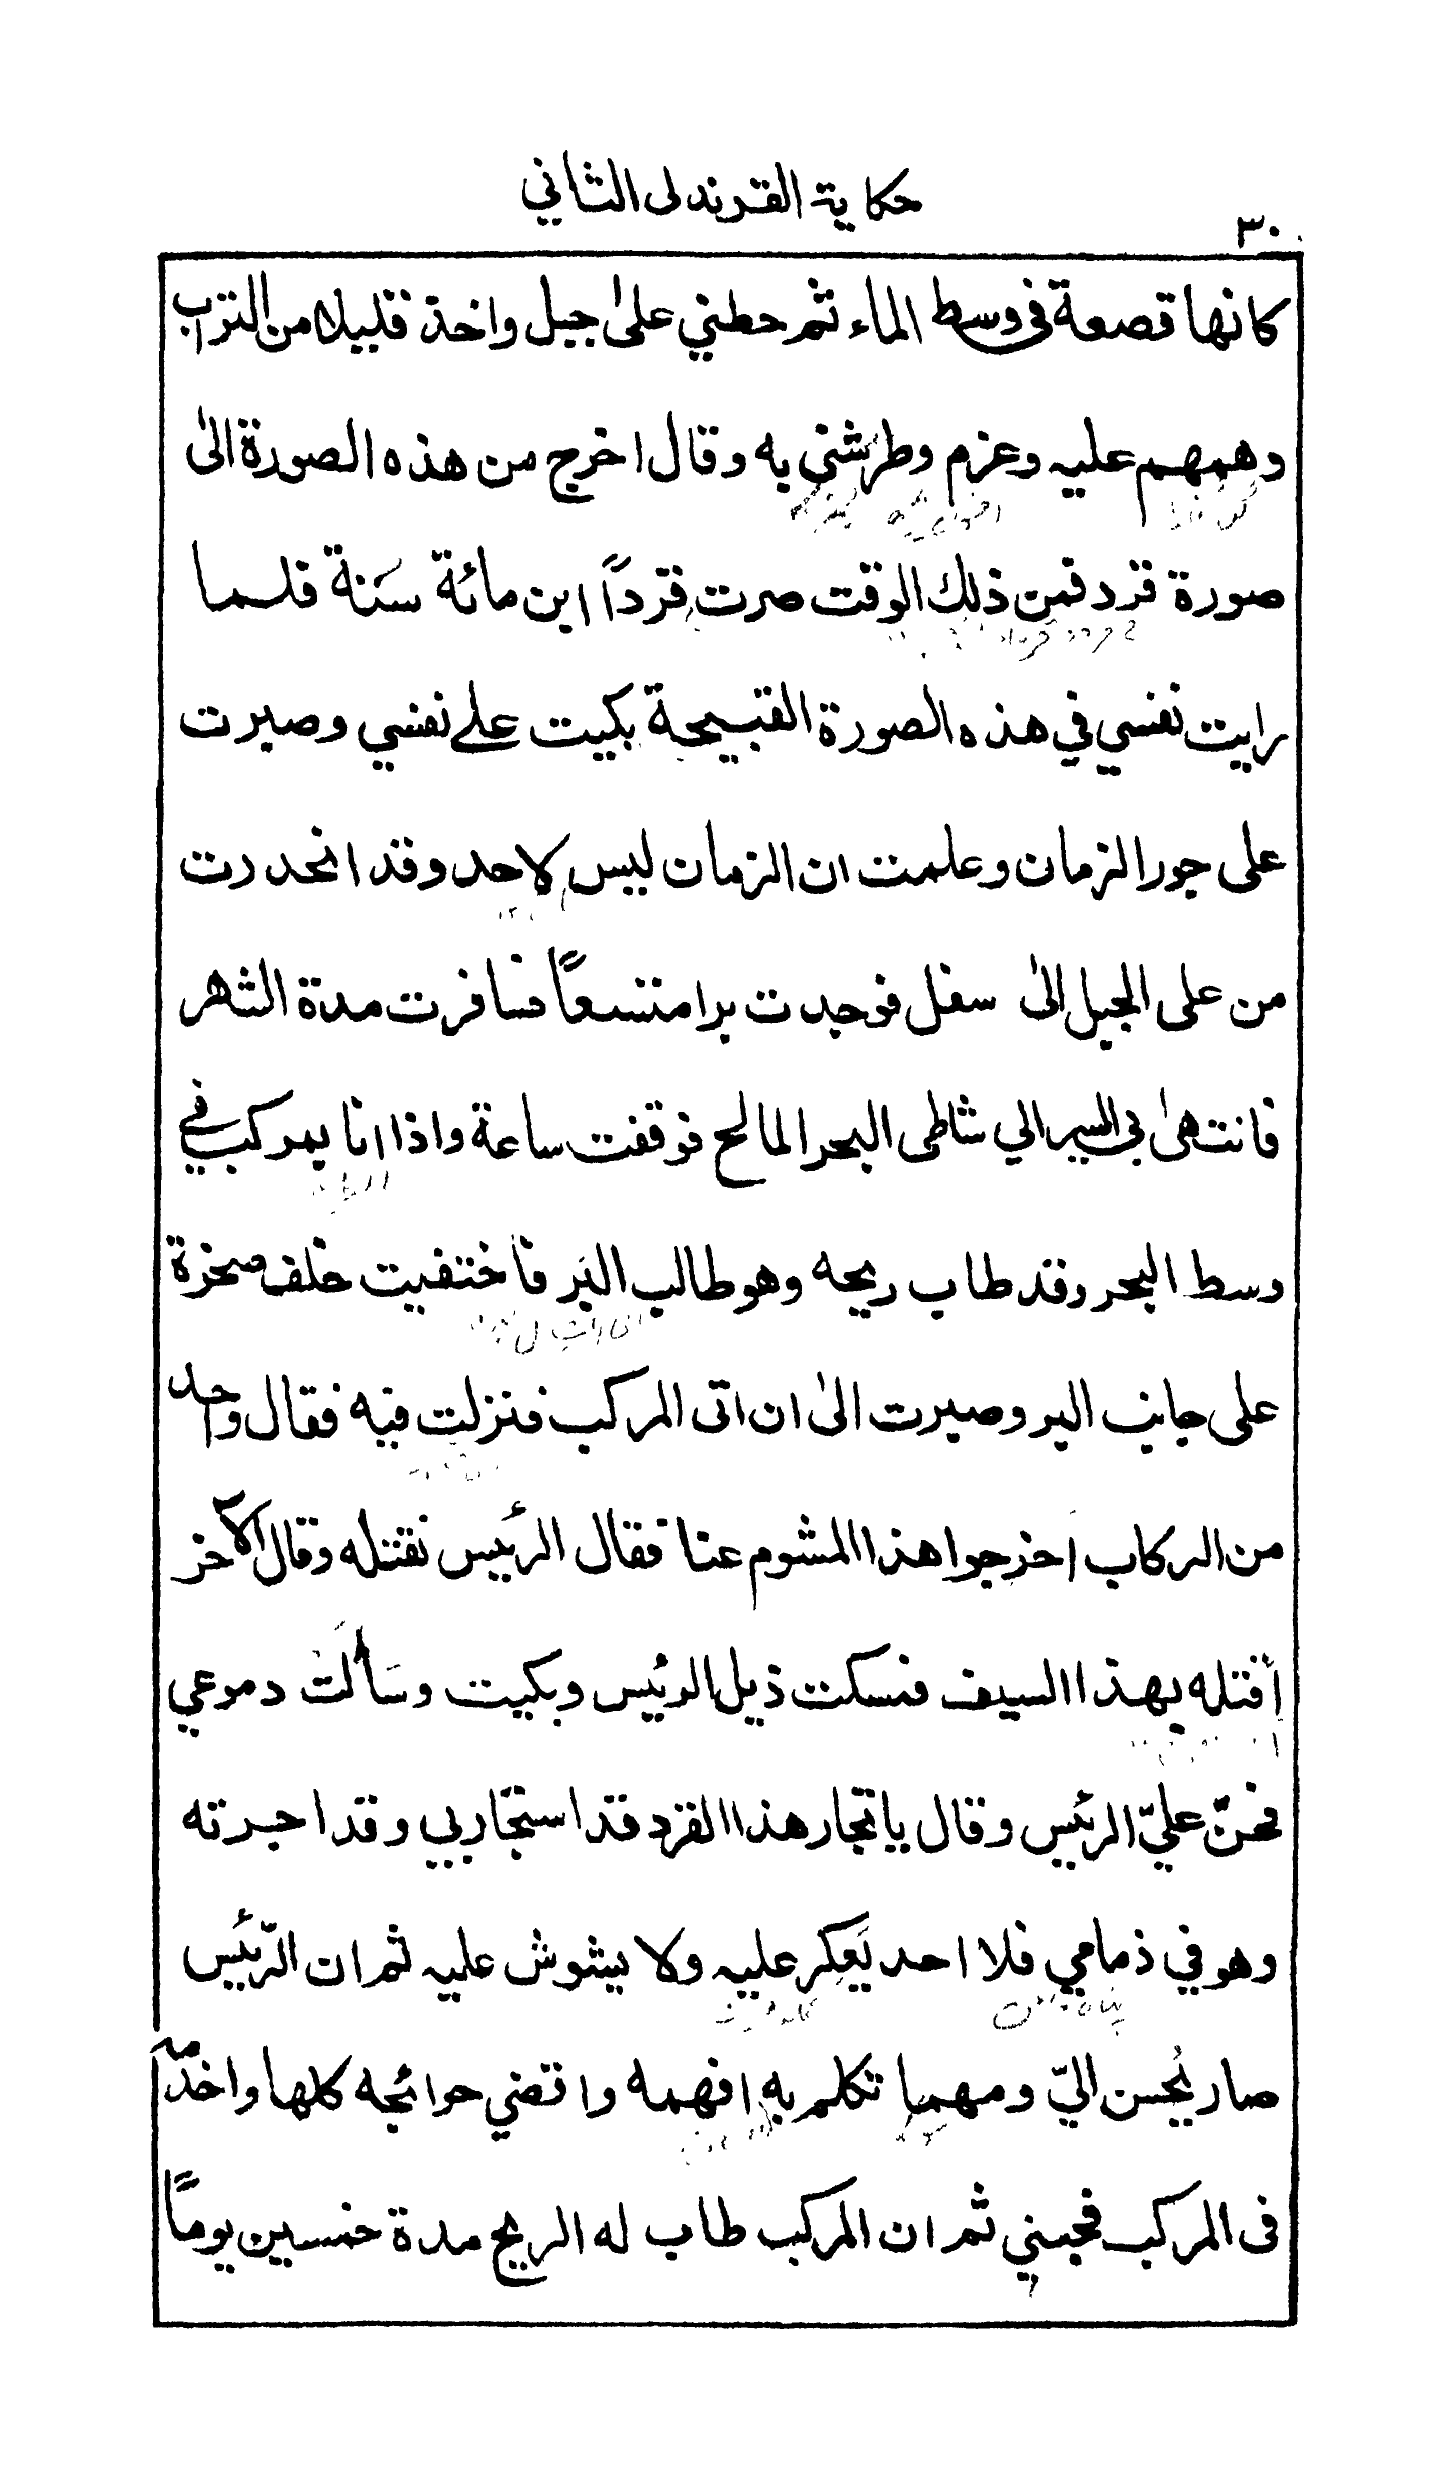 حكاية القرندلى الثاني
٣٠
كانها قصعة فى وسط الماء ثم حطني على جبل واخذ قليلا من التراب
وهمهم عليه وعزم وطرشني به وقال اخرج من هذه الصورة الى
صورة قرد فمن ذلك الوقت صرت قردًا ابن مائة سَنة فلما
رايت نفسي في هذه الصورة القبيحة بكيت على نفسي وصبرت
على جور الزمان وعلمت ان الزمان ليس لاحد وقد انحدرت
من على الجبل الى سفل فوجدت برا متسعًا فسافرت مدة الشهر
فانتهى بى السير الي شاطى البحر المالح فوقفت ساعة واذا انا بمركب في
وسط البحر وقد طاب ريحه وهو طالب البَر فأختفيت خلف صخرة
على جانب البر وصبرت الى ان اتى المركب فنزلت فيه فقال واحد
من الركاب أخرجوا هذا المشوم عنا فقال الرئيس نقتله وقال الآخر
أقتله بهذا السيف فمسكت ذيل الرئيس وبكيت وسَألت دموعي
فحنّ عليّ الرئيس وقال يا تجار هذا القرد قد استجار بي وقد اجرته
وهو في ذمامي فلا احد يَعكر عليه ولا يشوش عليه ثم ان الرّئيس
صار يُحسن اليّ ومهما تكلم به افهمه واقضي حوائجه كلها واخدمه
فى المركب فحبني ثم ان المركب طاب له الريح مدة خمسين يومًا